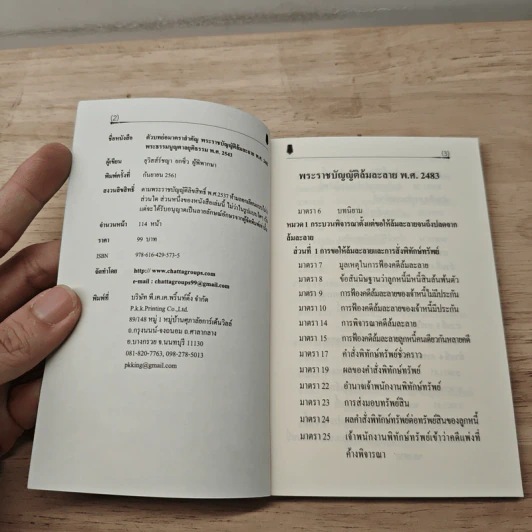 (2)
ชื่อหนังสือ ตัวบทย่อมาตราสำคัญ พระราชบัญญัติล้มละลาย พ.ศ. 2483
พระธรรมนูญศาลยุติธรรม พ.ศ. 2543
ผู้เขียน สุวิสส์รัชญา ผู้พิพากษา
พิมพ์ครั้งที่ กันยายน 2561
สงวนลิขสิทธิ์ ตามพระราชบัญญัติลิขสิทธิ์ พ.ศ.2537
ส่วนใด ส่วนหนึ่งของหนังสือเล่มนี้ ไม่ว่าในรูปแบบใดๆ
จำนวนหน้า 114 หน้า
ราคา 99 บาท
ISBN 978-616-429-573-5
จัดทำโดย http://www.chattagroups.com
e-mail : chattagroups99@gmail.com
พิมพ์ที่ บริษัท พี.เค.เค.พริ้นท์ติ้ง จำกัด
P.k.k.Printing Co.,Ltd.
89/148 หมู่ 1 หมู่บ้านศุภาลัยการ์เด้นวิลล์
ถ.กรุงนนน์-จงถนอม ต.ศาลากลาง
อ.บางกรวย จ.นนทบุรี 11130
081-820-7763, 098-278-5013
pkking@gmail.com
พระราชบัญญัติล้มละลาย พ.ศ. 2483
มาตรา 6 บทนิยาม
หมวด 1 กระบวนพิจารณาตั้งแต่ขอให้ล้มละลายจนถึงปลดจาก
ล้มละลาย
ส่วนที่ 1 การขอให้ล้มละลายและการสั่งพิทักษ์ทรัพย์
มาตรา 7 มูลเหตุในการฟ้องคดีล้มละลาย
มาตรา 8 ข้อสันนิษฐานว่าลูกหนี้มีหนี้สินล้นพ้นตัว
มาตรา 9 การฟ้องคดีล้มละลายของเจ้าหนี้ไม่มีประกัน
มาตรา 10 การฟ้องคดีล้มละลายของเจ้าหนี้มีประกัน
มาตรา 14 การพิจารณาคดีล้มละลาย
มาตรา 15 การฟ้องคดีล้มละลายลูกหนี้คนเดียวกันหลายคดี
มาตรา 17 คำสั่งพิทักษ์ทรัพย์ชั่วคราว
มาตรา 19 ผลของคำสั่งพิทักษ์ทรัพย์
มาตรา 22 อำนาจเจ้าพนักงานพิทักษ์ทรัพย์
มาตรา 23 การส่งมอบทรัพย์สิน
มาตรา 24 ผลคำสั่งพิทักษ์ทรัพย์ต่อทรัพย์สินของลูกหนี้
มาตรา 25 เจ้าพนักงานพิทักษ์ทรัพย์เข้าว่าคดีแพ่งที่
ค้างพิจารณา